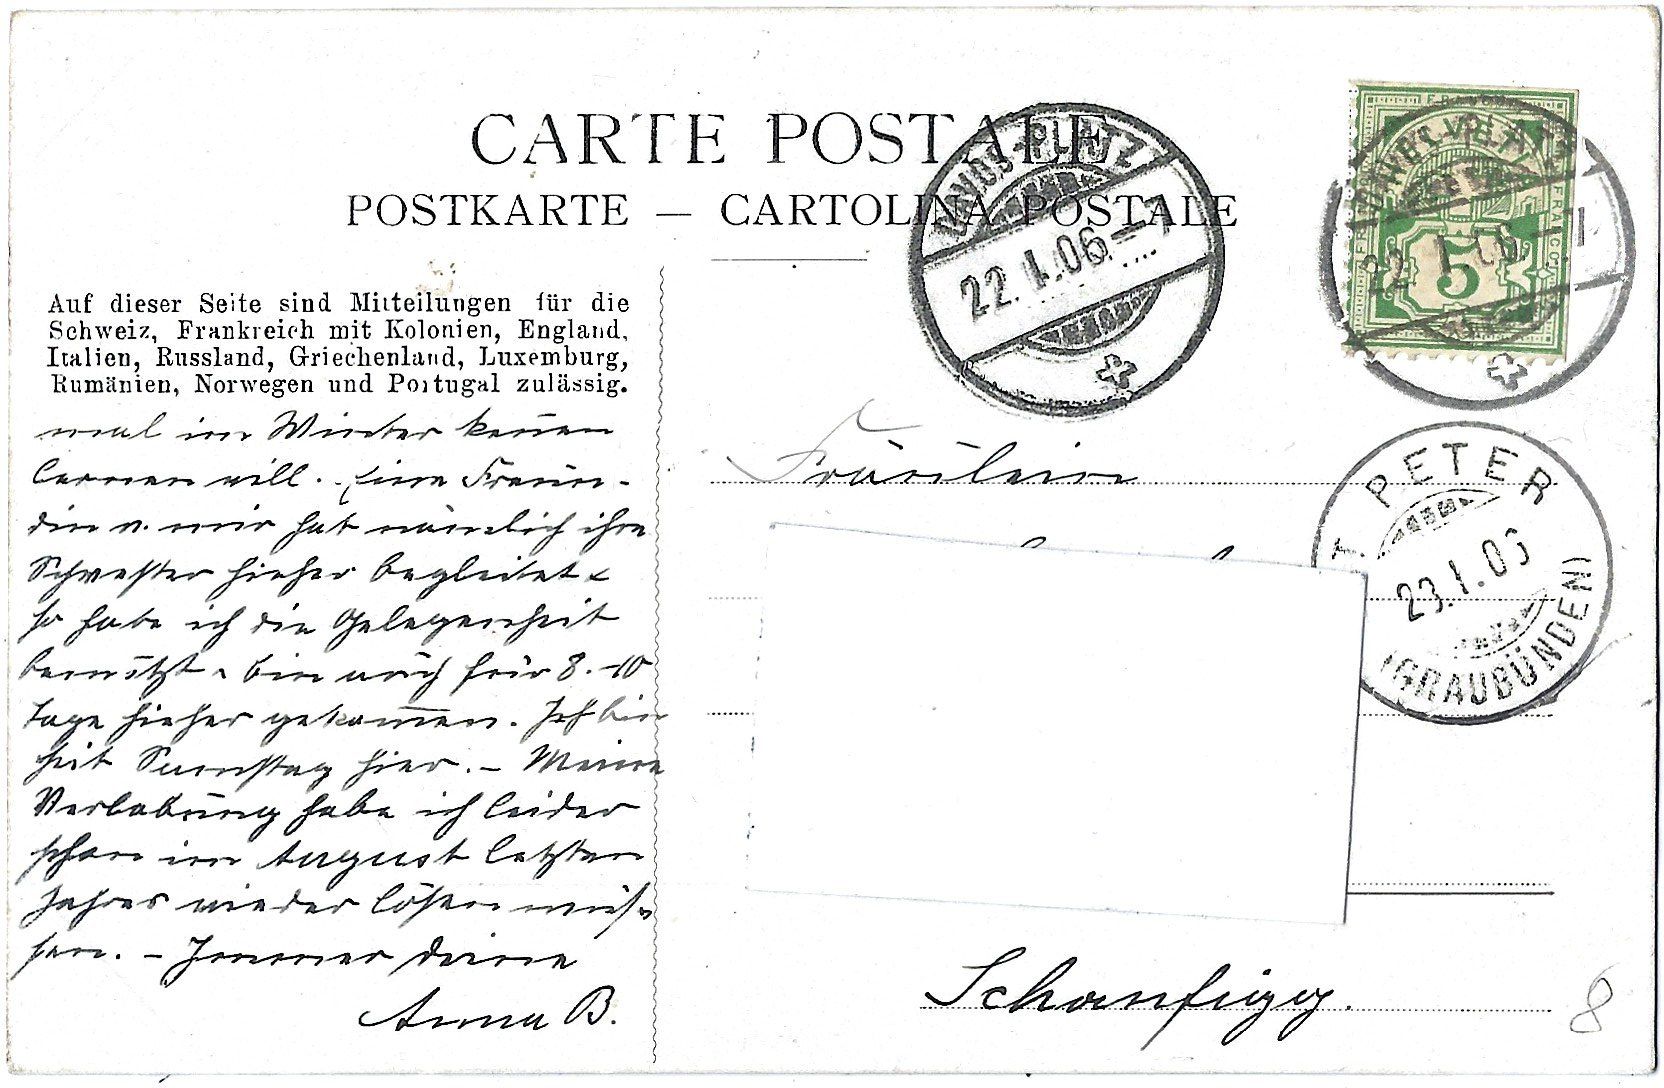 CARTE POSTALE
POSTKARTE — CARTOLINA POSTALE
Auf dieser Seite sind Mitteilungen für die
Schweiz, Frankreich mit Kolonien, England,
Italien, Russland, Griechenland, Luxemburg,
Rumänien, Norwegen und Portugal zulässig.
mal im Winter kennen
lernen will. - Eine Freun-
din v. mir hat nämlich ihre
Schwester hieher begleitet &
so habe ich die Gelegenheit
benützt & bin auch für 8.-10
Tage hieher gekommen. Ich bin
seit Samstag hier. - Meine
Verlobung habe ich leider
schon im August letzten
Jahres wieder lösen müs-
sen. - Immer deine
Anna B.
DAVOS-PLATZ
22.I.06.-7
FRANCO
5
DAVOS-PLATZ
22.I.06.-7
Fräulein
ST. PETER
23.I.06
(GRAUBÜNDEN)
Schanfigg.
8